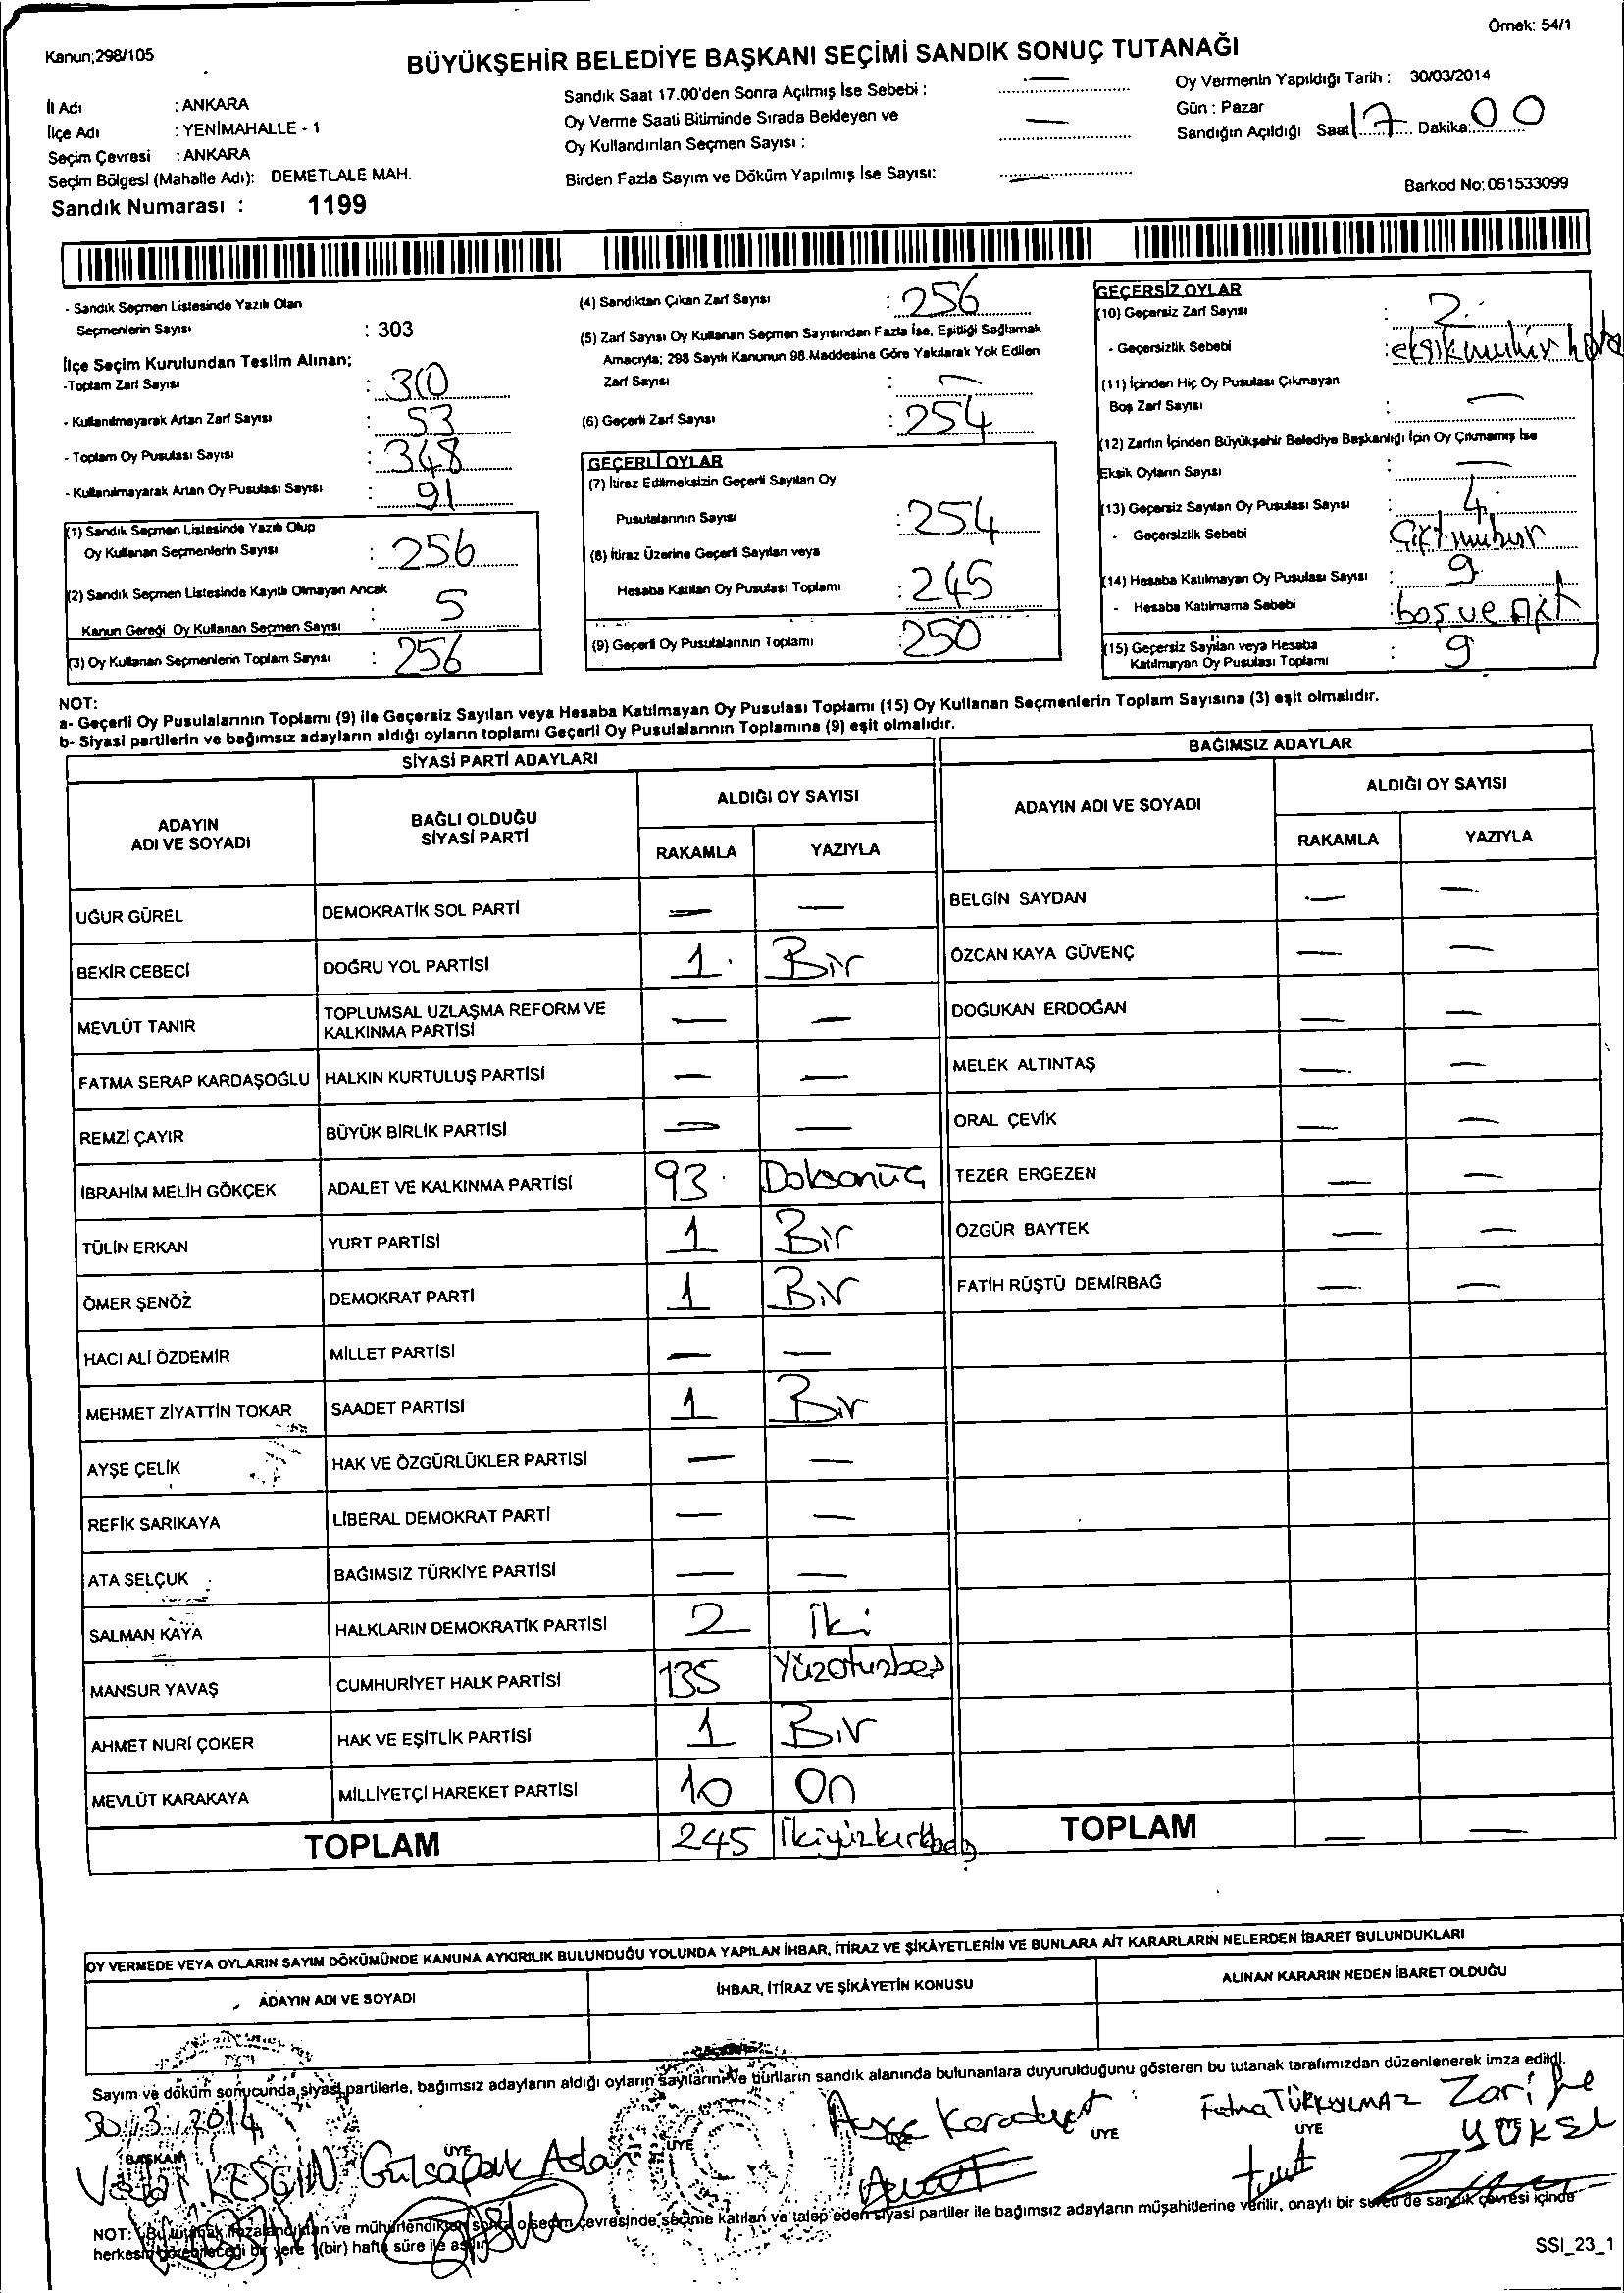 Örnek: 54/1
Kanun;298/105
BÜYÜKŞEHİR BELEDİYE BAŞKANI SEÇİMİ SANDIK SONUÇ TUTANAĞI
İl Adı : ANKARA
İlçe Adı : YENİMAHALLE - 1
Seçim Çevresi : ANKARA
Seçim Bölgesi (Mahalle Adı): DEMETLALE MAH.
Sandık Numarası : 1199
Sandık Saat 17.00'den Sonra Açılmış İse Sebebi : —
Oy Verme Saati Bitiminde Sırada Bekleyen ve
Oy Kullandırılan Seçmen Sayısı : —
Birden Fazla Sayım ve Döküm Yapılmış İse Sayısı: —
Oy Vermenin Yapıldığı Tarih : 30/03/2014
Gün : Pazar
Sandığın Açıldığı Saat 17 Dakika: 00
Barkod No: 061533099
- Sandık Seçmen Listesinde Yazılı Olan
Seçmenlerin Sayısı : 303
İlçe Seçim Kurulundan Teslim Alınan;
-Toplam Zarf Sayısı : 310
- Kullanılmayarak Artan Zarf Sayısı : 53
- Toplam Oy Pusulası Sayısı : 348
- Kullanılmayarak Artan Oy Pusulası Sayısı : 91
(1) Sandık Seçmen Listesinde Yazılı Olup
Oy Kullanan Seçmenlerin Sayısı : 256
(2) Sandık Seçmen Listesinde Kayıtlı Olmayan Ancak
Kanun Gereği Oy Kullanan Seçmen Sayısı : 5
(3) Oy Kullanan Seçmenlerin Toplam Sayısı : 256
(4) Sandıktan Çıkan Zarf Sayısı : 256
(5) Zarf Sayısı Oy Kullanan Seçmen Sayısından Fazla İse, Eşitliği Sağlamak
Amacıyla; 298 Sayılı Kanunun 98.Maddesine Göre Yakılarak Yok Edilen
Zarf Sayısı : —
(6) Geçerli Zarf Sayısı : 254
GEÇERLİ OYLAR
(7) İtiraz Edilmeksizin Geçerli Sayılan Oy
Pusulalarının Sayısı : 254
(8) İtiraz Üzerine Geçerli Sayılan veya
Hesaba Katılan Oy Pusulası Toplamı : 245
(9) Geçerli Oy Pusulalarının Toplamı : 250
GEÇERSİZ OYLAR
(10) Geçersiz Zarf Sayısı : 2
- Geçersizlik Sebebi : eksik mühür hata
(11) İçinden Hiç Oy Pusulası Çıkmayan
Boş Zarf Sayısı : —
(12) Zarfın İçinden Büyükşehir Belediye Başkanlığı İçin Oy Çıkmamış İse
Eksik Oyların Sayısı : —
(13) Geçersiz Sayılan Oy Pusulası Sayısı : 4
- Geçersizlik Sebebi : Çift mühür
(14) Hesaba Katılmayan Oy Pusulası Sayısı : 9
- Hesaba Katılmama Sebebi : boş ve
(15) Geçersiz Sayılan veya Hesaba
Katılmayan Oy Pusulası Toplamı : 9
NOT:
a- Geçerli Oy Pusulalarının Toplamı (9) ile Geçersiz Sayılan veya Hesaba Katılmayan Oy Pusulası Toplamı (15) Oy Kullanan Seçmenlerin Toplam Sayısına (3) eşit olmalıdır.
b- Siyasi partilerin ve bağımsız adayların aldığı oyların toplamı Geçerli Oy Pusulalarının Toplamına (9) eşit olmalıdır.
SİYASİ PARTİ ADAYLARI
ADAYIN ADI VE SOYADI BAĞLI OLDUĞU SİYASİ PARTİ ALDIĞI OY SAYISI
RAKAMLA YAZIYLA
UĞUR GÜREL DEMOKRATİK SOL PARTİ — —
BEKİR CEBECİ DOĞRU YOL PARTİSİ 1 Bir
MEVLÜT TANIR TOPLUMSAL UZLAŞMA REFORM VE KALKINMA PARTİSİ — —
FATMA SERAP KARDAŞOĞLU HALKIN KURTULUŞ PARTİSİ — —
REMZİ ÇAYIR BÜYÜK BİRLİK PARTİSİ — —
İBRAHİM MELİH GÖKÇEK ADALET VE KALKINMA PARTİSİ 93 Doksanüç
TÜLİN ERKAN YURT PARTİSİ 1 Bir
ÖMER ŞENÖZ DEMOKRAT PARTİ 1 Bir
HACI ALİ ÖZDEMİR MİLLET PARTİSİ — —
MEHMET ZİYATTİN TOKAR SAADET PARTİSİ 1 Bir
AYŞE ÇELİK HAK VE ÖZGÜRLÜKLER PARTİSİ — —
REFİK SARIKAYA LİBERAL DEMOKRAT PARTİ — —
ATA SELÇUK BAĞIMSIZ TÜRKİYE PARTİSİ — —
SALMAN KAYA HALKLARIN DEMOKRATİK PARTİSİ 2 İki
MANSUR YAVAŞ CUMHURİYET HALK PARTİSİ 135 Yüzotuzbeş
AHMET NURİ ÇOKER HAK VE EŞİTLİK PARTİSİ 1 Bir
MEVLÜT KARAKAYA MİLLİYETÇİ HAREKET PARTİSİ 10 On
TOPLAM 245 İkiyüzkırkbeş
BAĞIMSIZ ADAYLAR
ADAYIN ADI VE SOYADI ALDIĞI OY SAYISI
RAKAMLA YAZIYLA
BELGİN SAYDAN — —
ÖZCAN KAYA GÜVENÇ — —
DOĞUKAN ERDOĞAN — —
MELEK ALTINTAŞ — —
ORAL ÇEVİK — —
TEZER ERGEZEN — —
ÖZGÜR BAYTEK — —
FATİH RÜŞTÜ DEMİRBAĞ — —
TOPLAM — —
OY VERMEDE VEYA OYLARIN SAYIM DÖKÜMÜNDE KANUNA AYKIRILIK BULUNDUĞU YOLUNDA YAPILAN İHBAR, İTİRAZ VE ŞİKÂYETLERİN VE BUNLARA AİT KARARLARIN NELERDEN İBARET BULUNDUKLARI
ADAYIN ADI VE SOYADI İHBAR, İTİRAZ VE ŞİKÂYETİN KONUSU ALINAN KARARIN NEDEN İBARET OLDUĞU
Sayım ve döküm sonucunda siyasi partilerle, bağımsız adayların aldığı oyların sayılarını ve bunların sandık alanında bulunanlara duyurulduğunu gösteren bu tutanak tarafımızdan düzenlenerek imza edildi.
30/3/2014
BAŞKAN ÜYE ÜYE ÜYE ÜYE
KESGİN Aslan Ayşe Fatma TÜRKYILMAZ Zarife
YÜKSEL
NOT: Bu tutanak imzalandıktan ve mühürlendikten sonra o seçim çevresinde seçime katılan ve talep eden siyasi partiler ile bağımsız adayların müşahitlerine verilir, onaylı bir sureti de sandık çevresi içinde
herkesin görebileceği bir yere 1(bir) hafta süre ile asılır.
SSI_23_1